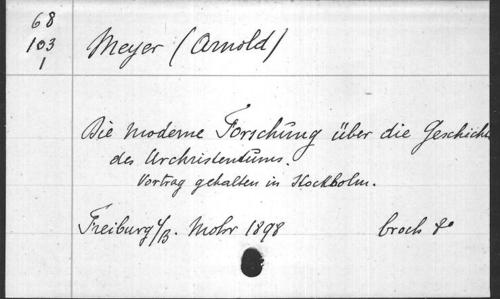 68
103
1
Meyer (Arnold)
Die moderne Forschung über die Geschichte
des Urchristentums.
Vortrag gehalten in Stockholm.
Freiburg i/B. Mohr 1898 broch 8°